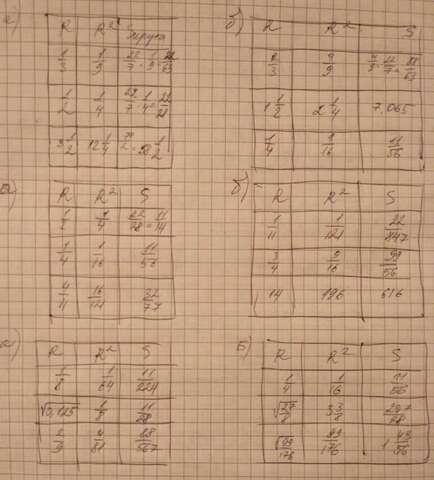 а)
R R² Sкруга
1/3 1/9 22/7 · 1/9 = 22/63
1/2 1/4 22/7 · 1/4 = 22/28
3 1/2 12 1/4
б)
R R² S
2/3 4/9 4/9 · 22/7 = 88/63
1 1/2 2 1/4 7.065
1/4 1/16 11/56
а)
R R² S
1/2 1/4 22/28 = 11/14
1/4 1/16 11/56
4/11 16/121 32/77
б)
R R² S
1/11 1/121 22/847
3/4 9/16 99/56
14 196 616
а)
R R² S
1/8 1/64 11/224
√0,125 1/8 11/28
2/9 4/81 88/567
б)
R R² S
1/4 1/16 11/56
√27/8 297/28
√99/176 99/176 1 43/56